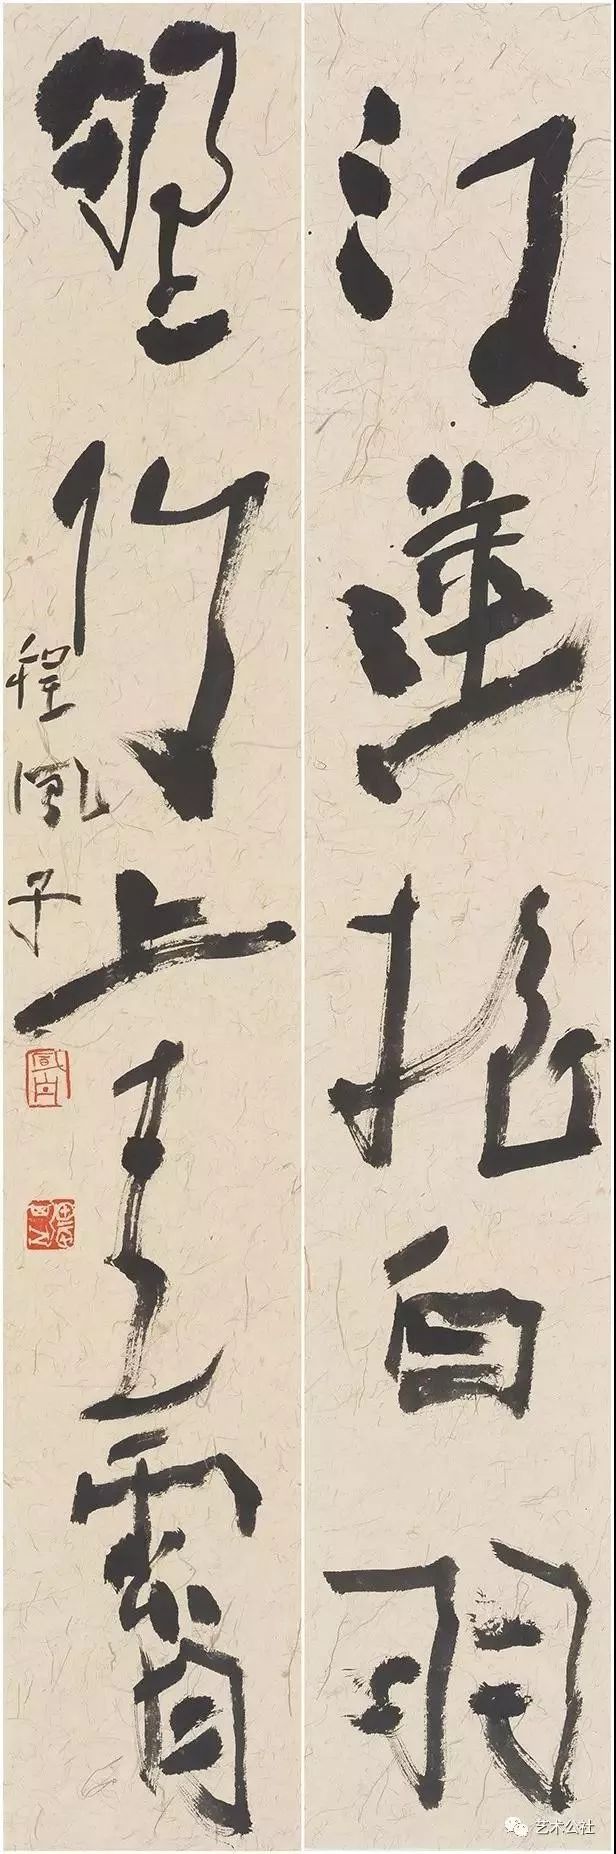 江蓮摇白羽
野竹上青霄
程風子
艺术公社